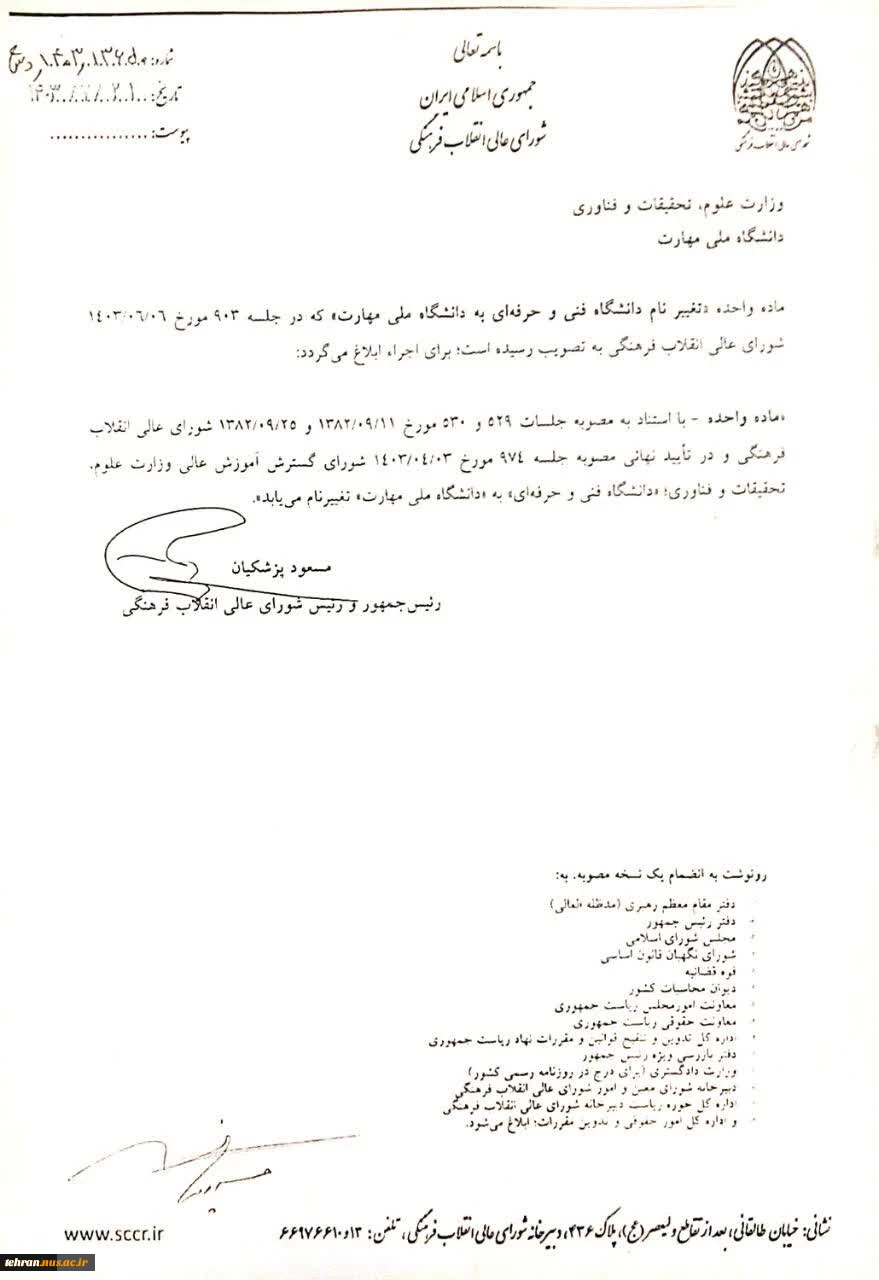 باسمه تعالی
جمهوری اسلامی ایران
شورای عالی انقلاب فرهنگی
شماره:
تاریخ:
پیوست: ................
شورای عالی انقلاب فرهنگی
وزارت علوم، تحقیقات و فناوری
دانشگاه ملی مهارت
ماده واحده «تغییر نام دانشگاه فنی و حرفه‌ای به دانشگاه ملی مهارت» که در جلسه ۹۰۳ مورخ ۱٤۰۳/۰٦/۰٦
شورای عالی انقلاب فرهنگی به تصویب رسیده است؛ برای اجراء ابلاغ می‌گردد:
«ماده واحده - با استناد به مصوبه جلسات ٥۲۹ و ٥۳۰ مورخ ۱۳۸۲/۰۹/۱۱ و ۱۳۸۲/۰۹/۲٥ شورای عالی انقلاب
فرهنگی و در تأیید نهائی مصوبه جلسه ۹۷٤ مورخ ۱٤۰۳/۰٤/۰۳ شورای گسترش آموزش عالی وزارت علوم،
تحقیقات و فناوری؛ «دانشگاه فنی و حرفه‌ای» به «دانشگاه ملی مهارت» تغییرنام می‌یابد».
مسعود پزشکیان
رئیس‌جمهور و رئیس شورای عالی انقلاب فرهنگی
رونوشت به انضمام یک نسخه مصوبه، به:
دفتر مقام معظم رهبری (مدظله العالی)
دفتر رئیس جمهور
مجلس شورای اسلامی
شورای نگهبان قانون اساسی
قوه قضائیه
دیوان محاسبات کشور
معاونت امورمجلس ریاست جمهوری
معاونت حقوقی ریاست جمهوری
اداره کل تدوین و تنقیح قوانین و مقررات نهاد ریاست جمهوری
دفتر بازرسی ویژه رئیس جمهور
وزارت دادگستری (برای درج در روزنامه رسمی کشور)
دبیرخانه شورای معین و امور شورای عالی انقلاب فرهنگی
اداره کل حوزه ریاست دبیرخانه شورای عالی انقلاب فرهنگی
و اداره کل امور حقوقی و تدوین مقررات؛ ابلاغ می‌شود.
نشانی: خیابان طالقانی، بعد از تقاطع ولیعصر (عج)، پلاک ۴۳۶، دبیرخانه شورای عالی انقلاب فرهنگی، تلفن: ۱۳و۶۶۹۷۶۶۱۰
www.sccr.ir
tehran.nus.ac.ir